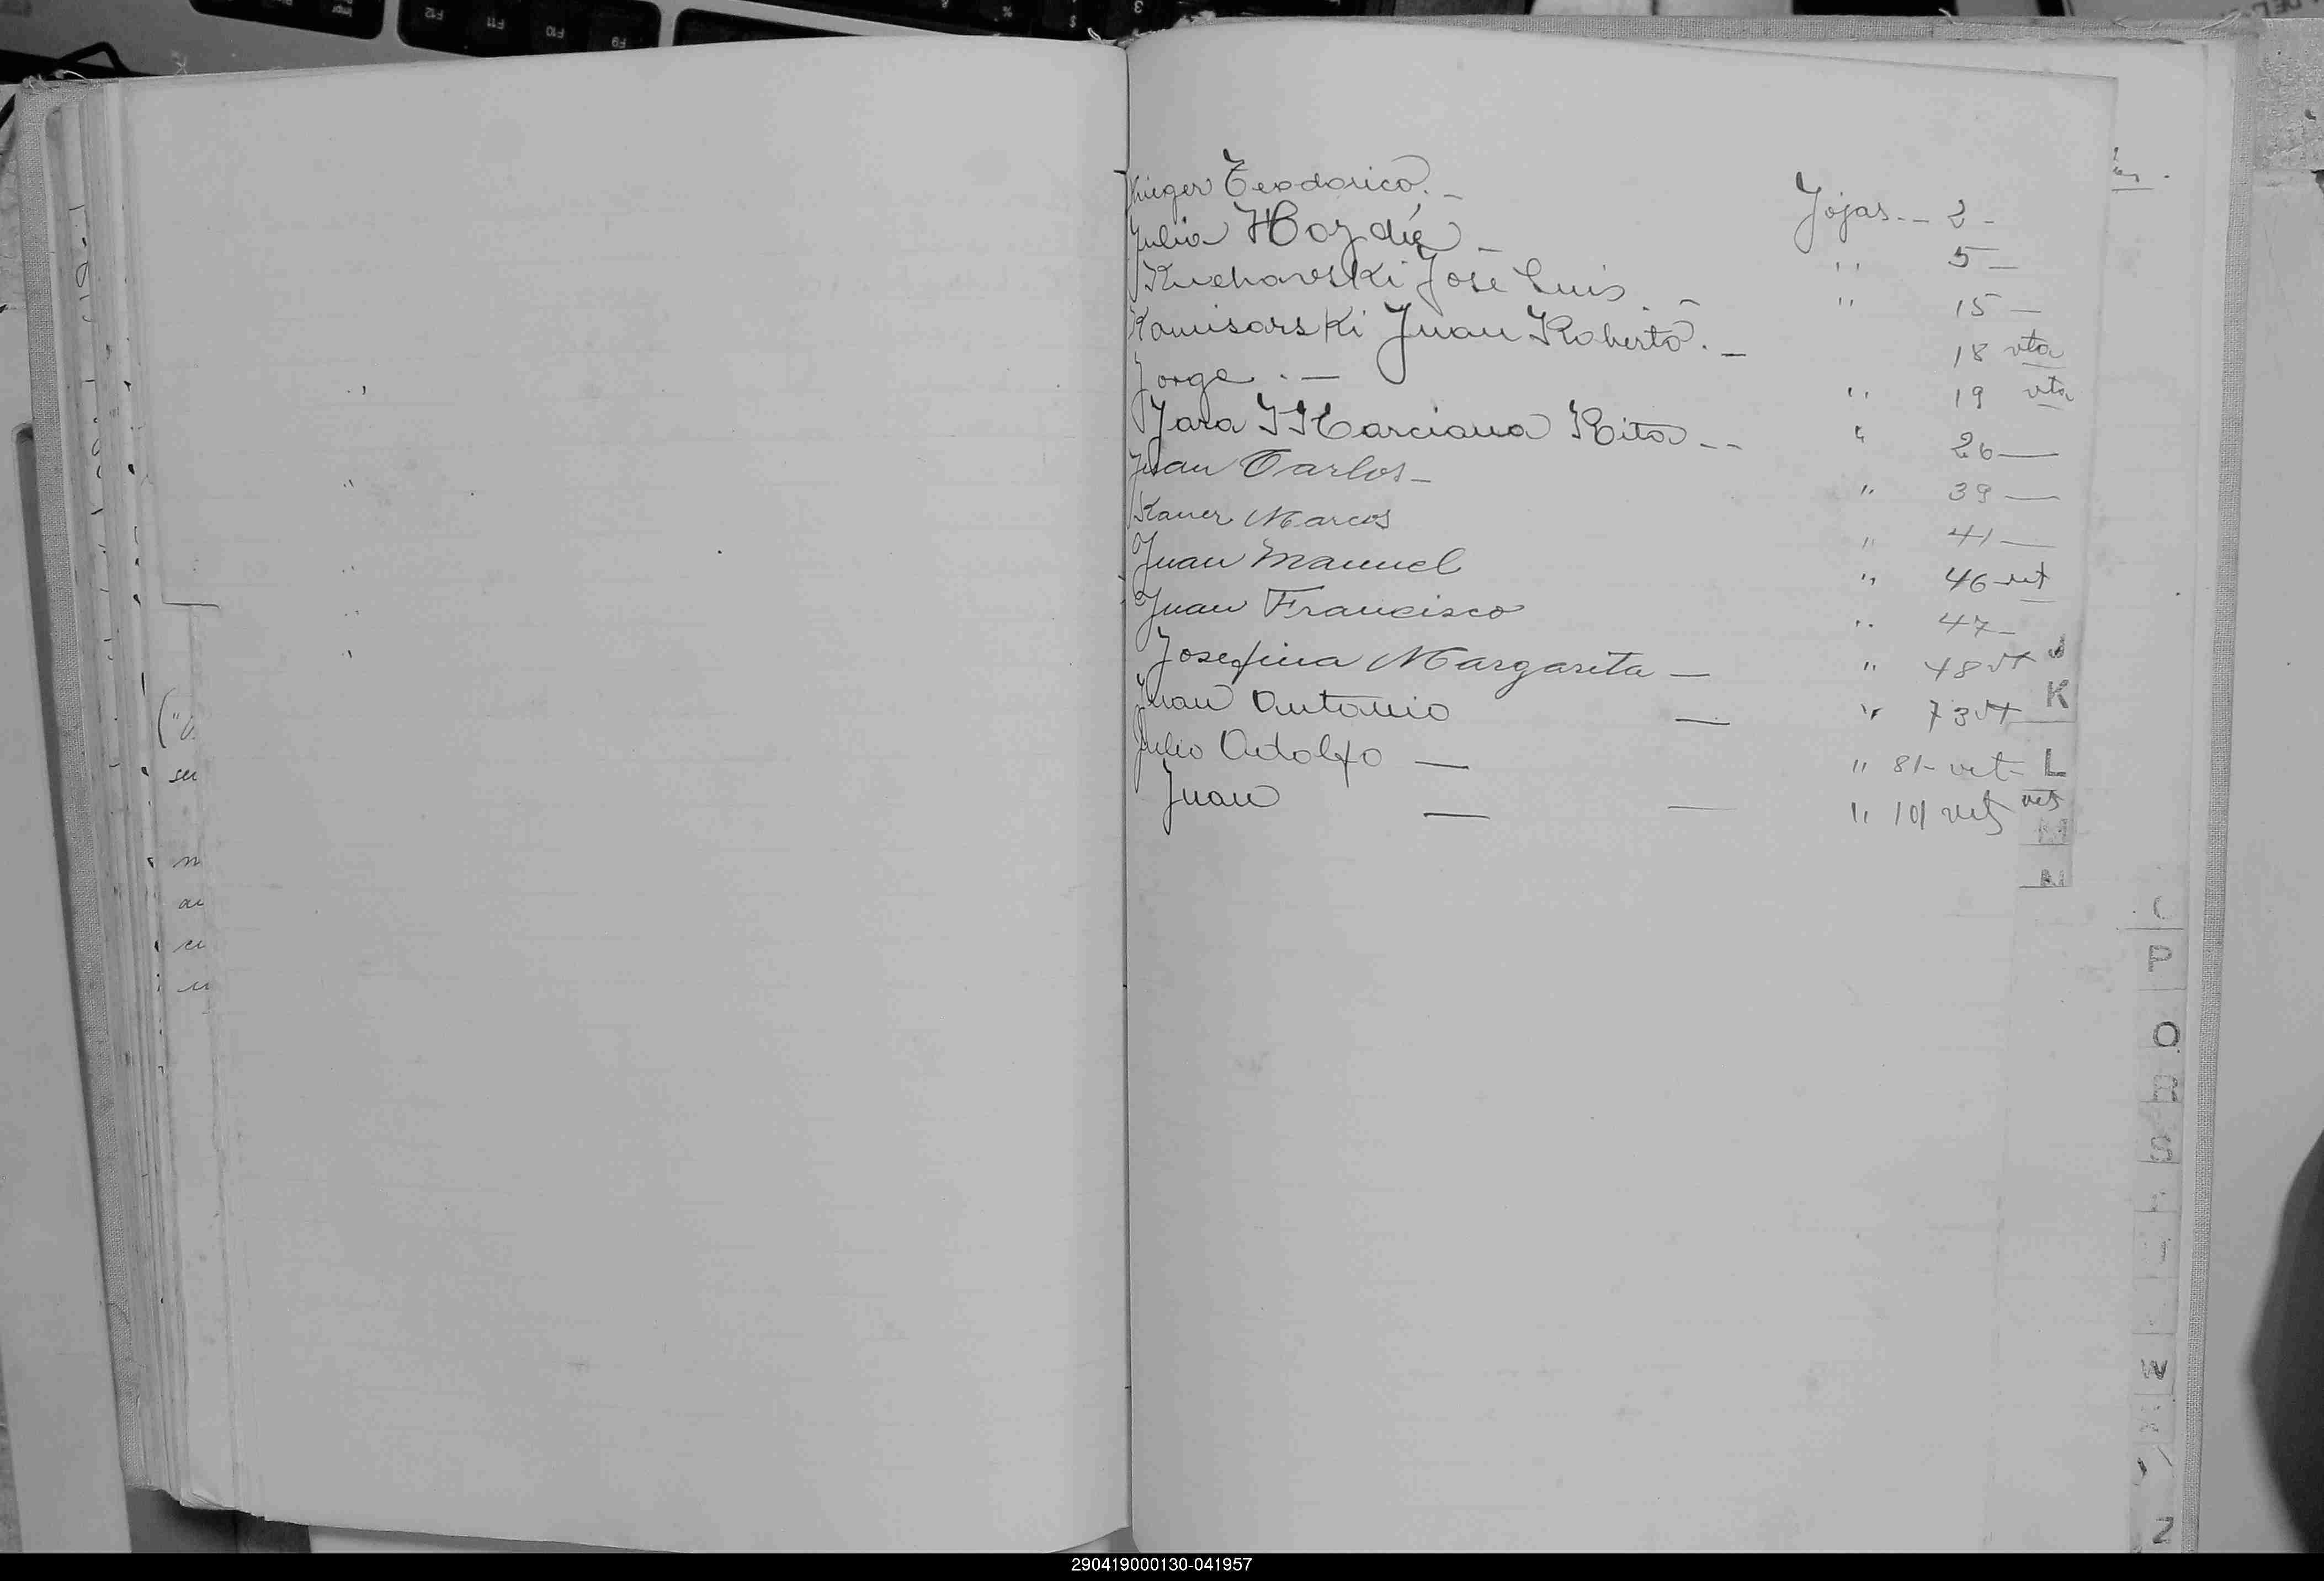 Krieger Teodorico. — Fojas -- 2 -
Julia Haydée — " 5 —
Kuchavski José Luis. — " 15 —
Komisarski Juan Roberto. — 18 vta
Jorge. — " 19 vta
Jara Marciana Rita -- " 26 —
Juan Carlos - " 39 —
Kaner Marcos " 41 —
Juan Manuel " 46 vt
Juan Francisco " 47 -
Josefina Margarita — " 48 vt
Juan Antonio — " 73 vt
Julio Adolfo — " 81 - vt -
Juan — — " 101 vt
J
K
L
M
N
P
Q
R
S
W
Z
290419000130-041957